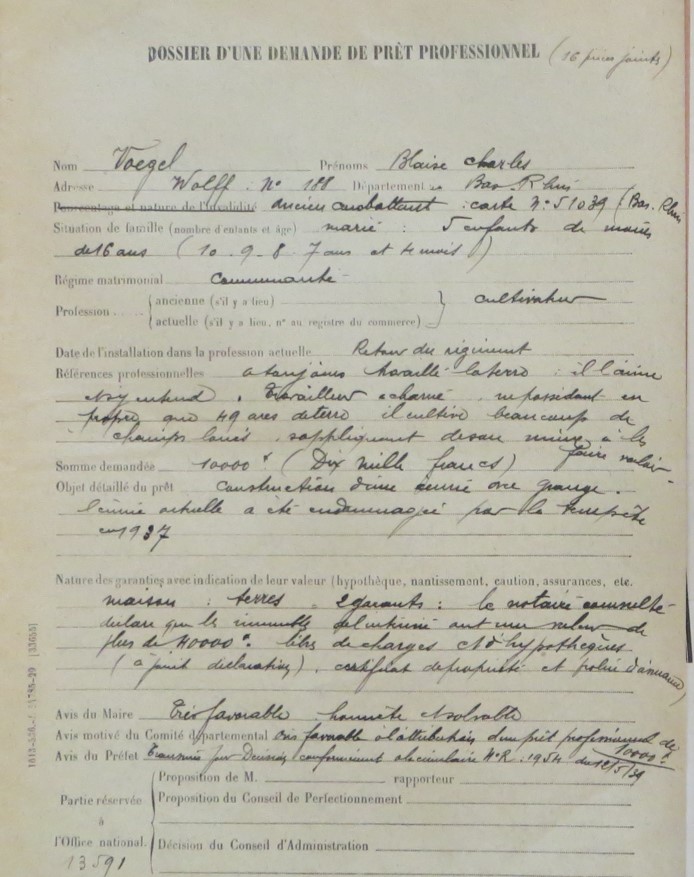 DOSSIER D'UNE DEMANDE DE PRÊT PROFESSIONNEL (16 pièces jointes)
Nom Voegel Prénoms Blaise Charles
Adresse Wolff. N° 188 Département Bas-Rhin
Pourcentage et nature de l'invalidité ancien combattant : carte N° 51039 (Bas. Rhin
Situation de famille (nombre d'enfants et âge) marié : 5 enfants de moins
de 16 ans (10. 9. 8. 7 ans et 4 mois)
Régime matrimonial Communauté
Profession ancienne (s'il y a lieu) cultivateur
actuelle (s'il y a lieu, n° au registre du commerce)
Date de l'installation dans la profession actuelle Retour du régiment
Références professionnelles a toujours travaillé la terre : il l'aime
et s'y entend. Travailleur acharné, ne possédant en
propre que 49 ares de terre il cultive beaucoup de
champs loués, s'appliquant de son mieux à les
faire valoir
Somme demandée 10000 f (Dix mille francs)
Objet détaillé du prêt Construction d'une écurie avec grange.
L'écurie actuelle a été endommagée par la tempête
en 1937
Nature des garanties avec indication de leur valeur (hypothèque, nantissement, caution, assurances, etc.
maison : terres. 2 garants : le notaire consulté
déclare que les immeubles de l'intéressé ont une valeur de
plus de 40000 f. libres de charges et d'hypothèques
(ci joint déclaration), certificat de propriété et police d'assurance)
Avis du Maire Très favorable honnête et solvable
Avis motivé du Comité départemental très favorable à l'attribution d'un prêt professionnel de
10000 f.
Avis du Préfet Transmis pour Décision conformément à la circulaire N° R. 1954 du 12/5/39
Partie réservée
à
l'Office national.
13591
Proposition de M. rapporteur
Proposition du Conseil de Perfectionnement
Décision du Conseil d'Administration